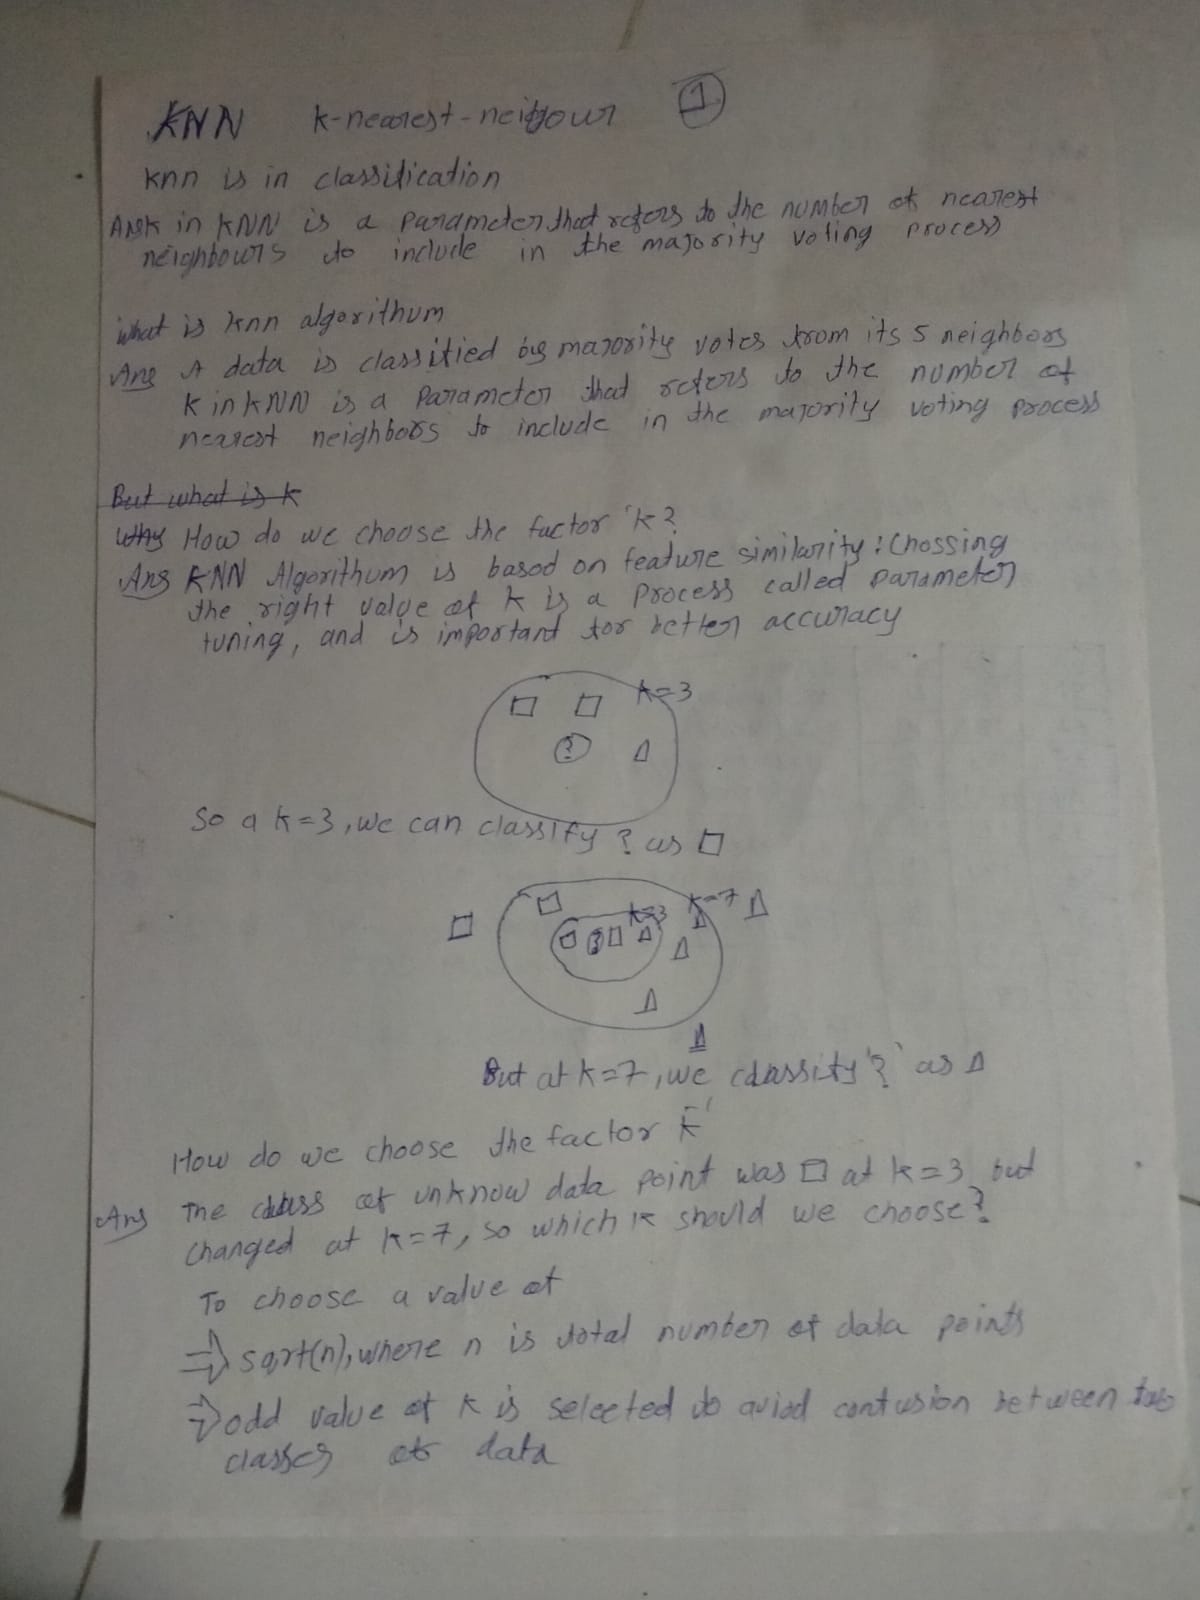 KNN k-nearest-neighour 1
knn is in classification
Ans K in KNN is a parameter that refers to the number of nearest
neighbours to include in the majority voting process
what is knn algorithum
Ans A data is classified by majority votes from its 5 neighbors
K in KNN is a parameter that refers to the number of
nearest neighbors to include in the majority voting process
But what is k
Why How do we choose the factor 'k?
Ans KNN Algorithum is based on feature similarity: Chossing
the right value of k is a process called parameter
tuning, and is important for better accuracy
k=3
?
So a k=3, we can classify ? as □
k=7
k=3
?
But at k=7, we classify '?' as Δ
How do we choose the factor k'
Ans The class of unknow data point was □ at k=3, but
changed at k=7, so which k should we choose?
To choose a value of
⇒ sqrt(n), where n is total number of data points
⇒ odd value of k is selected to aviod confusion between two
classes of data